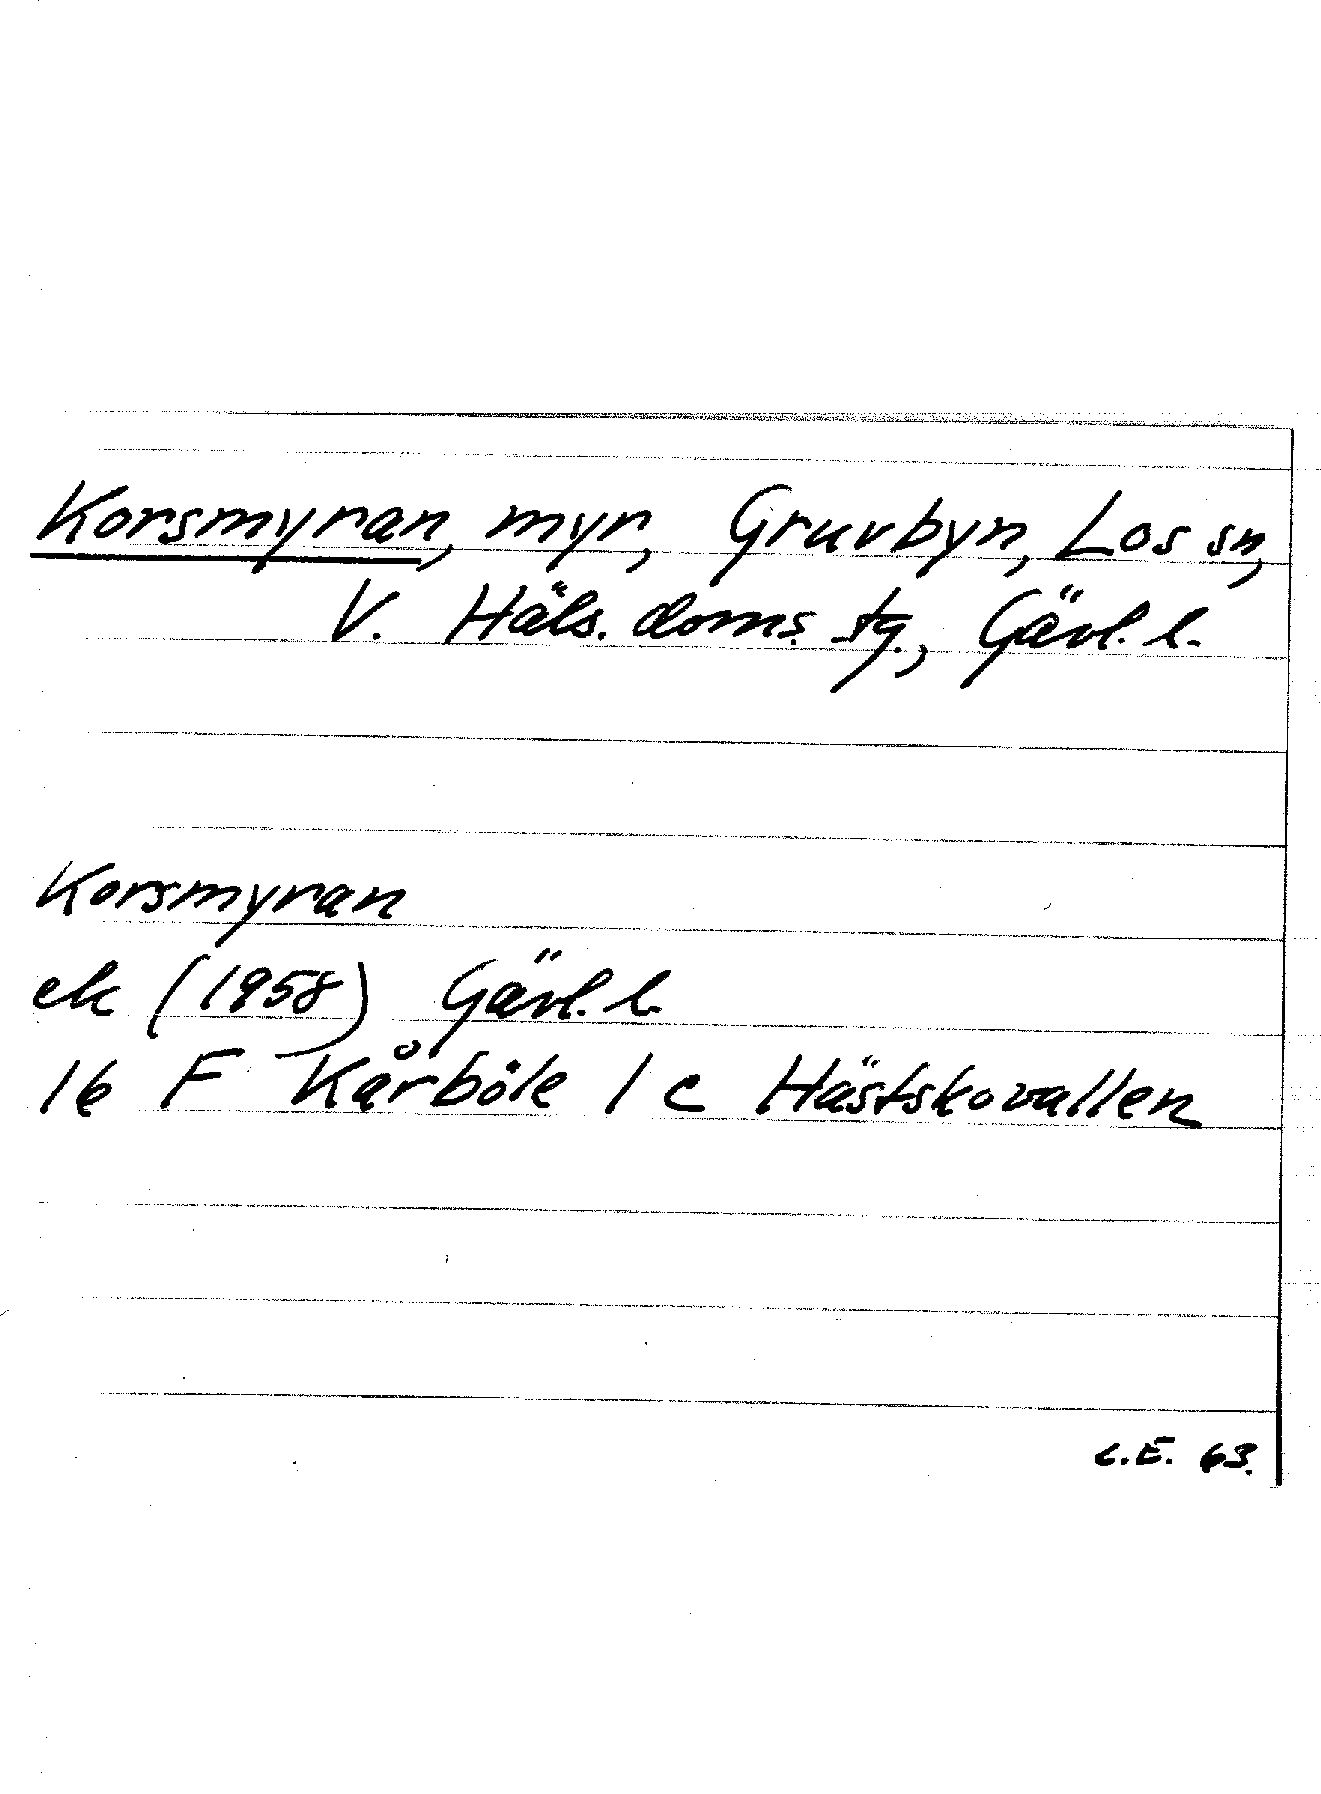 Korsmyran, myr, Gruvbyn, Los sn,
V. Häls. doms. tg., Gävl. l.
Korsmyran
ek (1958) Gävl. l.
16 F Kårböle 1 c Hästskovallen
L.E. 63.